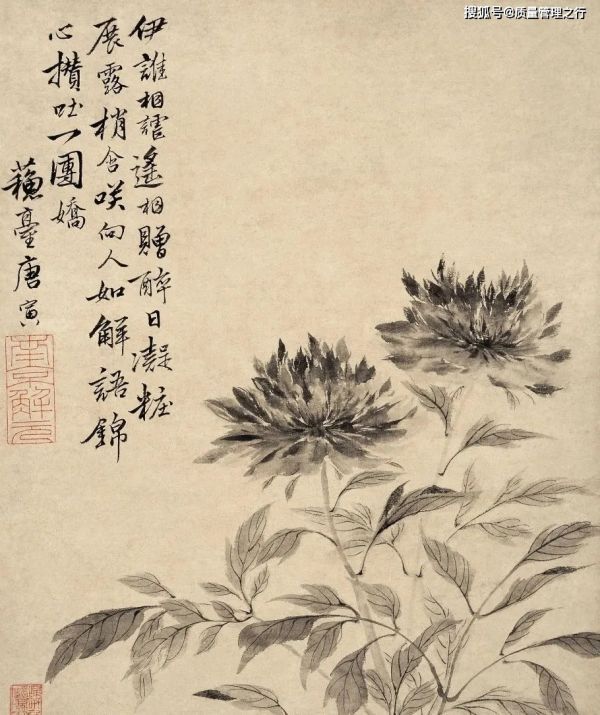 搜狐号@质量管理之行
伊誰相謔遙相贈醉日凝粧
展露梢含咲向人如解語錦
心攢吐一團嬌
蘓臺唐寅
南京解元